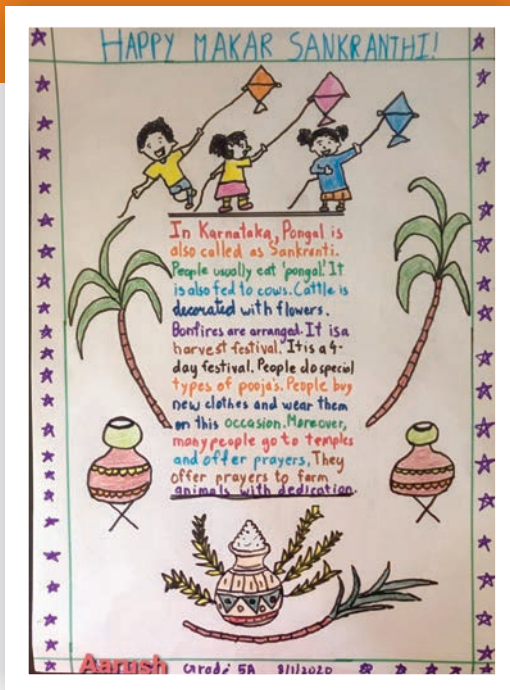 HAPPY MAKAR SANKRANTHI!
In Karnataka, Pongal is
also called as Sankranti.
People usually eat 'pongal.' It
is also fed to cows. Cattle is
decorated with flowers.
Bonfires are arranged. It is a
harvest festival. It is a 4-
day festival. People do special
types of pooja's. People buy
new clothes and wear them
on this occasion. Moreover,
many people go to temples
and offer prayers. They
offer prayers to farm
animals with dedication.
Aarush Grade 5A 8/1/2020